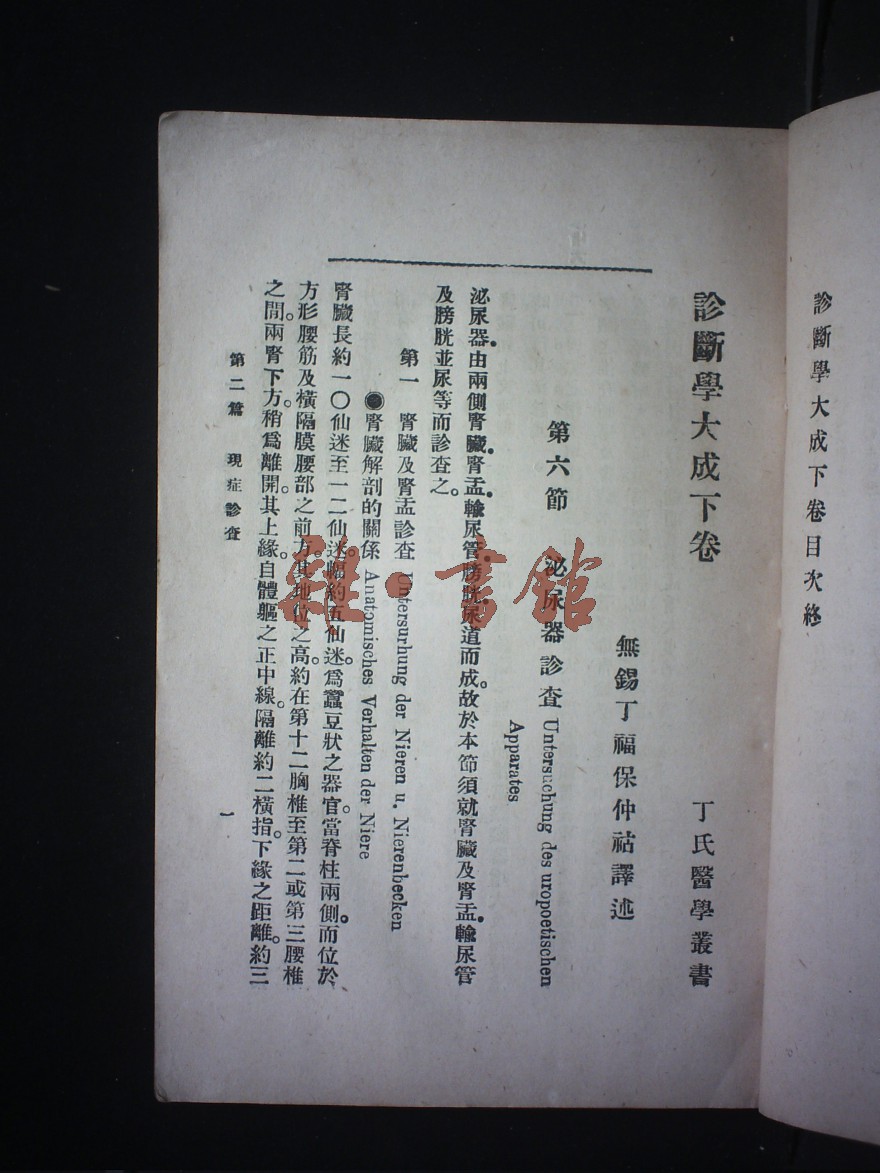 診斷學大成下卷目次終
診斷學大成下卷
丁氏醫學叢書
無錫丁福保仲祜譯述
第六節 泌尿器診查 Untersuchung des uropoetischen
Apparates
泌尿器由兩側腎臟腎盂輸尿管膀胱尿道而成。故於本節須就腎臟及腎盂輸尿管
及膀胱並尿等而診查之。
第一 腎臟及腎盂診查 Untersurhung der Nieren u. Nierenbecken
●腎臟解剖的關係 Anatomisches Verhalten der Niere
腎臟長約一〇仙迷至一二仙迷。幅約五仙迷。爲蠶豆狀之器官。當脊柱兩側。而位於
方形腰筋及橫隔膜腰部之前方。其地位之高。約在第十二胸椎至第二或第三腰椎
之間。兩腎下方。稍爲離開。其上緣。自體軀之正中線。隔離約二橫指。下緣之距離。約三
第二篇 現症診查
一
雜·書館